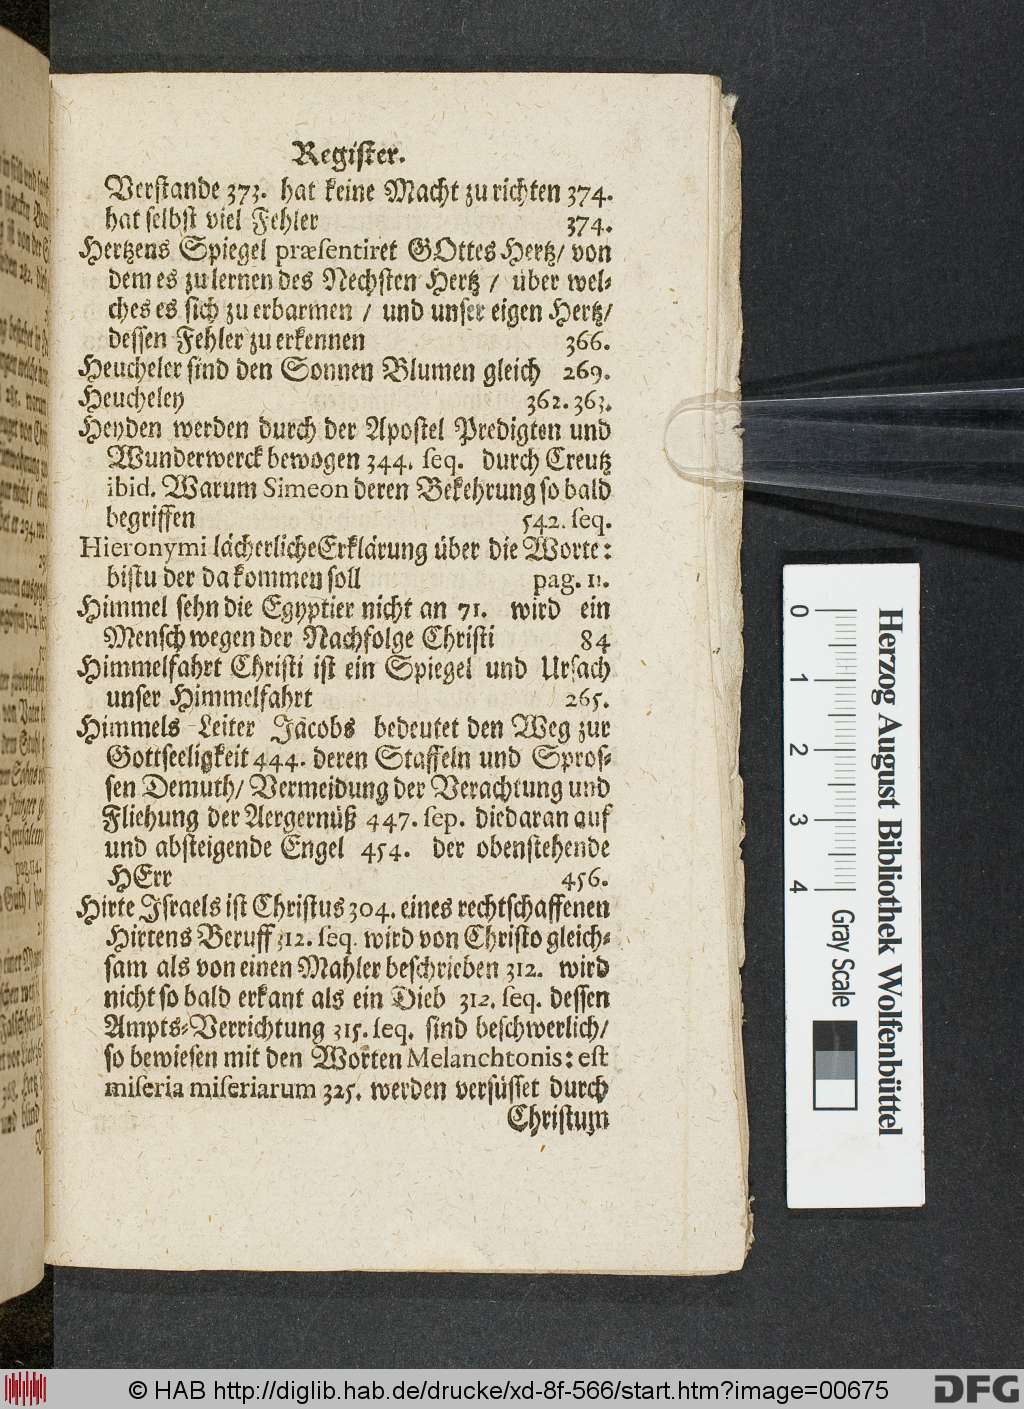 Register.
Verstande 373. hat keine Macht zu richten 374.
hat selbst viel Fehler 374.
Hertzens Spiegel præsentiret GOttes Hertz/ von
dem es zu lernen des Nechsten Hertz / über wel-
ches es sich zu erbarmen / und unser eigen Hertz/
dessen Fehler zu erkennen 366.
Heucheler sind den Sonnen Blumen gleich 269.
Heucheley 362. 363.
Heyden werden durch der Apostel Predigten und
Wunderwerck bewogen 344. seq. durch Creutz
ibid. Warum Simeon deren Bekehrung so bald
begriffen 542. seq.
Hieronymi lächerliche Erklärung über die Worte:
bistu der da kommen soll pag. 11.
Himmel sehn die Egyptier nicht an 71. wird ein
Mensch wegen der Nachfolge Christi 84
Himmelfahrt Christi ist ein Spiegel und Ursach
unser Himmelfahrt 265.
Himmels-Leiter Jacobs bedeutet den Weg zur
Gottseeligkeit 444. deren Staffeln und Spros-
sen Demuth/ Vermeidung der Verachtung und
Fliehung der Aergernüß 447. sep. die daran auf
und absteigende Engel 454. der obenstehende
HErr 456.
Hirte Israels ist Christus 304. eines rechtschaffenen
Hirtens Beruff 312. seq. wird von Christo gleich-
sam als von einen Mahler beschrieben 312. wird
nicht so bald erkant als ein Dieb 312. seq. dessen
Ampts-Verrichtung 315. seq. sind beschwerlich/
so bewiesen mit den Worten Melanchtonis: est
miseria miseriarum 325. werden versüsset durch
Christum
0 1 2 3 4
Gray Scale
Herzog August Bibliothek Wolfenbüttel
© HAB http://diglib.hab.de/drucke/xd-8f-566/start.htm?image=00675
DFG